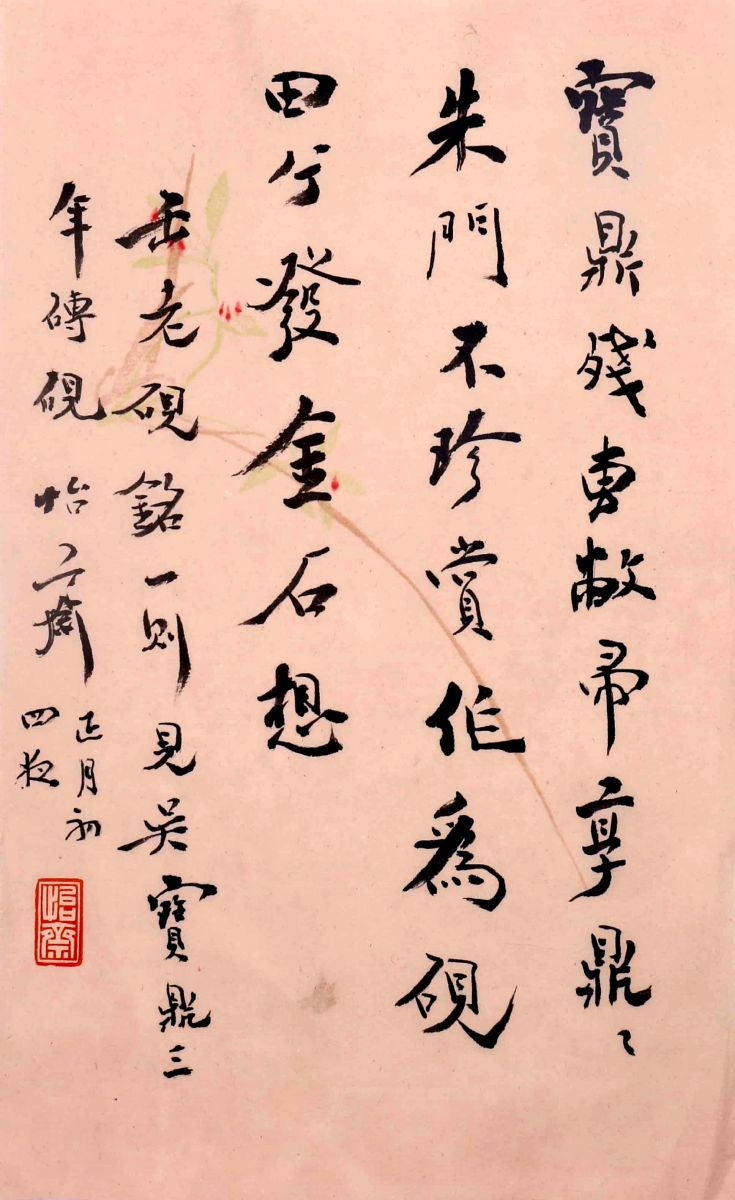 寶鼎殘專敝帚享鼎〻
朱門不珍賞作爲硯
田兮發金石想
缶老硯銘一則見吳寶鼎三
年磚硯 怡齋
正月初
四夜
怡齋